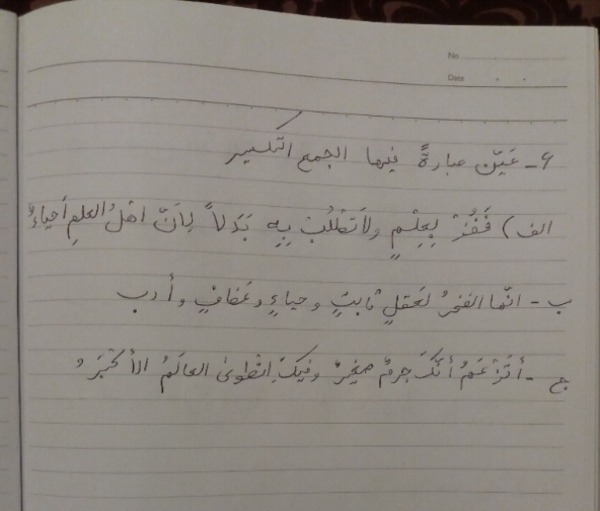 No
Date
۶- عَيّن عبارةً فيها الجمع التكسير
الف) فَفُزْ بِعِلْمٍ ولاتَطْلُبْ بِهِ بَدَلاً لِأنَّ اهْلُ العلمِ أحياءُ
ب- انّما الفخرُ لعَقلٍ ثابتٍ وحياءٍ وعَفافٍ وأدب
ج- أتَزْعَمُ أنّكَ جرمٌ صغيرٌ وفيكَ اِنْطَوىٰ العالَمُ الأكْبَرُ